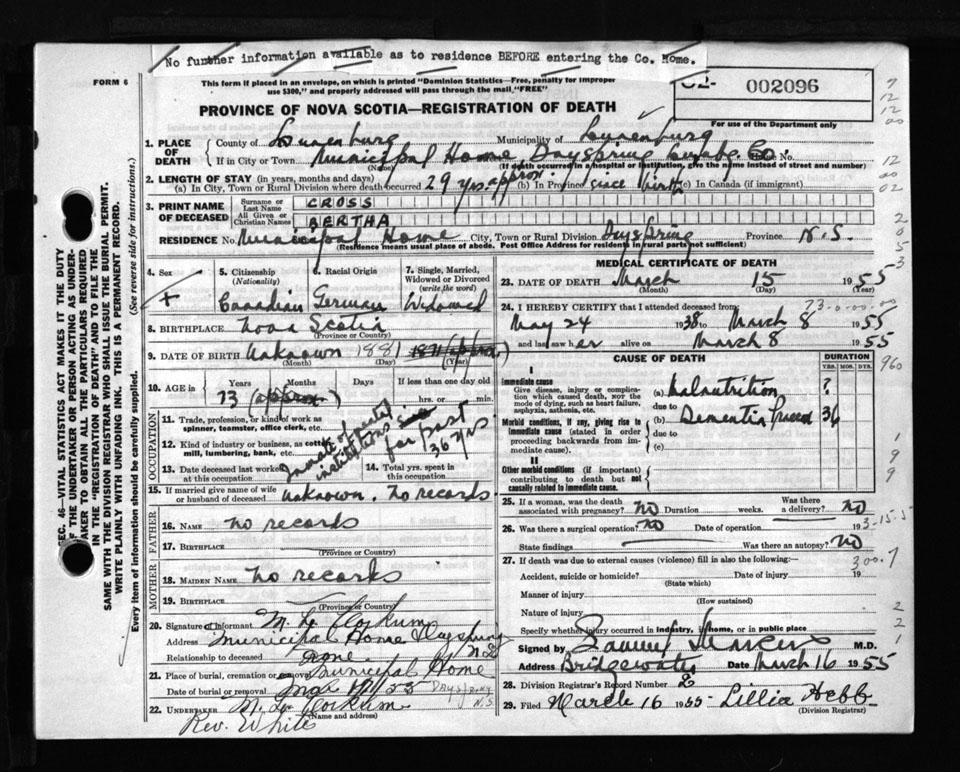 No further information available as to residence BEFORE entering the Co. Home.
FORM 6
This form if placed in an envelope, on which is printed "Dominion Statistics—Free, penalty for improper
use $300," and properly addressed will pass through the mail "FREE"
002096
PROVINCE OF NOVA SCOTIA—REGISTRATION OF DEATH
For use of the Department only
1. PLACE OF DEATH
County of Lunenburg Municipality of Lunenburg
If in City or Town Municipal Home, Dayspring Lunbg. Co. No.
(Name) (If death occurred in a hospital or institution, give the name instead of street and number)
2. LENGTH OF STAY (in years, months and days)
(a) In City, Town or Rural Division where death occurred 29 yrs approx (b) In Province since birth (c) In Canada (if immigrant)
3. PRINT NAME OF DECEASED
Surname or Last Name CROSS
All Given or Christian Names BERTHA
RESIDENCE No. Municipal Home City, Town or Rural Division Dayspring Province N.S.
(Residence means usual place of abode. Post Office Address for residents in rural parts not sufficient)
4. Sex
5. Citizenship (Nationality) Canadian
6. Racial Origin German
7. Single, Married, Widowed or Divorced (write the word) Widowed
8. BIRTHPLACE Nova Scotia
(Province or Country)
9. DATE OF BIRTH Unknown 1881 1871 (approx.)
(Month) (Day) (Year)
10. AGE in Years Months Days If less than one day old
73 (approx) hrs. or min.
OCCUPATION
11. Trade, profession, or kind of work as spinner, teamster, office clerk, etc.
12. Kind of industry or business, as cotton mill, lumbering, bank, etc.
Inmate of mental institutions for past 36 yrs
13. Date deceased last worked at this occupation
14. Total yrs. spent in this occupation
15. If married give name of wife or husband of deceased Unknown. No records
FATHER
16. NAME No records
17. BIRTHPLACE
(Province or Country)
MOTHER
18. MAIDEN NAME No records
19. BIRTHPLACE
(Province or Country)
20. Signature of informant M. L. Corkum
Address Municipal Home Dayspring N.S.
Relationship to deceased None
21. Place of burial, cremation or removal Municipal Home
Date of burial or removal
22. UNDERTAKER M. L. Corkum
(Name and address)
Rev. White
MEDICAL CERTIFICATE OF DEATH
23. DATE OF DEATH March 15 1955
(Month) (Day)
24. I HEREBY CERTIFY that I attended deceased from:
May 24 1938 to March 8 1955
and last saw her alive on March 8 1955
CAUSE OF DEATH
DURATION
YRS. MOS. DYS.
I
Immediate cause
Give disease, injury or complication which caused death, NOT the mode of dying, such as heart failure, asphyxia, asthenia, etc.
(a) Malnutrition ?
due to
Morbid conditions, if any, giving rise to immediate cause (stated in order proceeding backwards from immediate cause).
(b) Dementia Praecox 36
due to
(c)
II
Other morbid conditions (if important) contributing to death but not causally related to immediate cause.
25. If a woman, was the death associated with pregnancy? No Duration weeks. Was there a delivery? No
26. Was there a surgical operation? No Date of operation 193-15-5
State findings Was there an autopsy? No
27. If death was due to external causes (violence) fill in also the following:—
300.7
Accident, suicide or homicide? Date of injury 19
(State which)
Manner of injury
(How sustained)
Nature of injury
Specify whether injury occurred in industry, in home, or in public place
Signed by Samuel Marcus M.D.
Address Bridgewater Date March 16 1955
28. Division Registrar's Record Number 2
29. Filed March 16 1955 Lillia Hebb
(Division Registrar)
SEC. 46—VITAL STATISTICS ACT MAKES IT THE DUTY
OF THE UNDERTAKER OR PERSON ACTING AS UNDERTAKER TO OBTAIN ALL THE PARTICULARS REQUIRED
IN THE "REGISTRATION OF DEATH" AND TO FILE THE
SAME WITH THE DIVISION REGISTRAR WHO SHALL ISSUE THE BURIAL PERMIT.
WRITE PLAINLY WITH UNFADING INK. THIS IS A PERMANENT RECORD.
Every item of information should be carefully supplied. (See reverse side for instructions.)